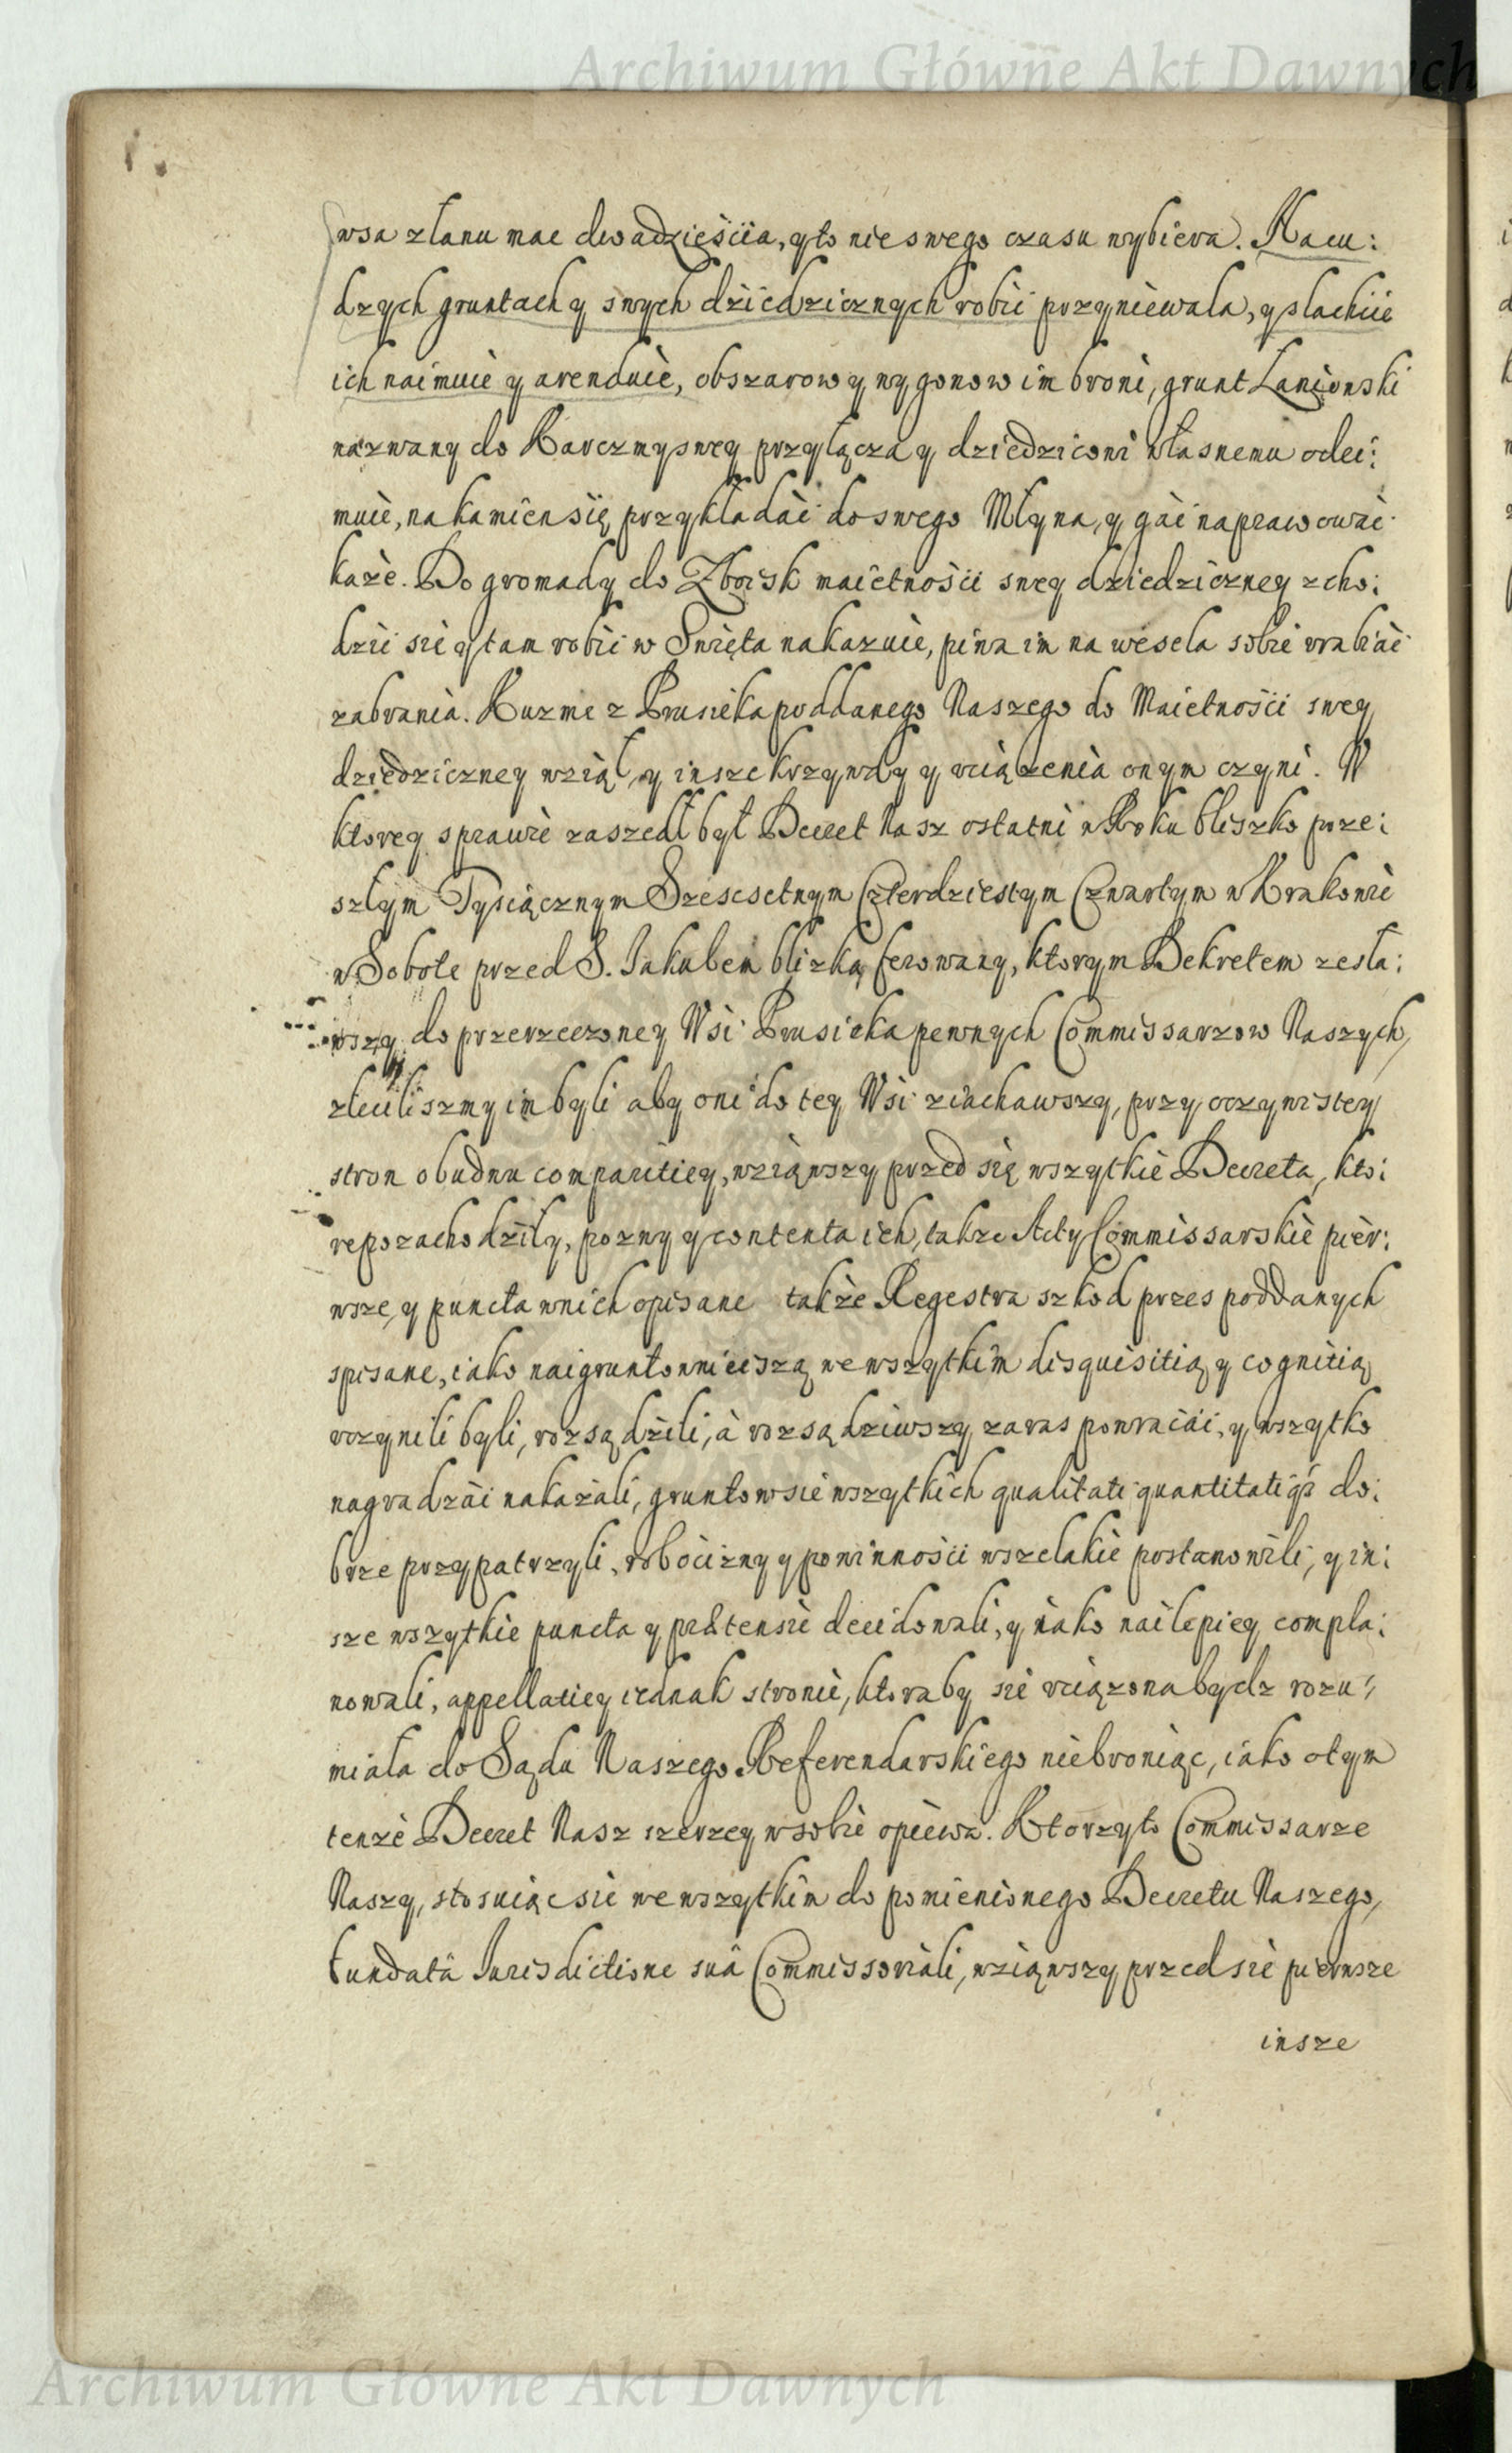 Archiwum Główne Akt Dawnych
wsa złanu mac dwadzieśćia, yto nie swego czasu wybiera. Na cu:
dzych gruntach y swych dźiedzicznych robić przyniewala, y slachcie
ich naimuie y arenduie, obszarow y wygonow im broni, grunt Laniowski
nazwany do Karczmy swey przyłącza y dziedzicowi własnemu odei:
muie, na kamien się przykładać do swego Młyna, y gać naprawować
każe. Do gromady do Zboisk maiętnośći swey dziedziczney zcho:
dźić sie y tam robić w Swięta nakazuie, piwa im na wesela sobie wrabiać
zabrania. Kuzme z Prusieka poddanego Naszego do Maiętnośći swey
dziedziczney wziął, y insze krzywdy y vciążenia onym czyni. W
ktorey sprawie zaszedł był Decret Nasz ostatni w Roku bliszko prze:
szłym Tysiącznym Szescsetnym Czterdziestym Czwartym w Krakowie
w Sobote przed S. Jakubem blizką ferowany, ktorym Dekretem zesła:
wszy do przerzeczoney Wsi Prusieka pewnych Commissarzow Naszych,
zlećiliszmy im byli aby oni do tey Wsi ziachawszy, przy oczywistey
stron obudwu comparitiey, wziąwszy przed się wszytkie Decreta, kto:
re pozachodziły, pozwy y contenta ich, także Acty Commissarskie pier:
wsze, y puncta wnich opisane także Regestra szkod przes poddanych
spisane, iako naigruntownieiszą we wszytkim disquisitią y cognitią
vczynili byli, rozsądzili, à rozsądziwszy zaras powracać, y wszytko
nagradzać nakazali, gruntow sie wszytkich qualitati quantitatiq́ do:
brze przypatrzyli, robocizny y powinnośći wszelakie postanowili, y in:
sze wszytkie puncta y prætensie decidowali, y iako nailepiey compla:
nowali, appellatiey iednak stronie, ktoraby się vciążona bydz rozu:
miała do Sądu Naszego Referendarskiego niebroniąc, iako o tym
tenże Decret Nasz szerzey w sobie opiewa. Ktorzyto Commissarze
Naszy, stosuiąc sie we wszytkim do pomienionego Decretu Naszego,
fundatâ Jurisdictione suâ Commissoriali, wziąwszy przed sie pierwsze
insze
Archiwum Główne Akt Dawnych